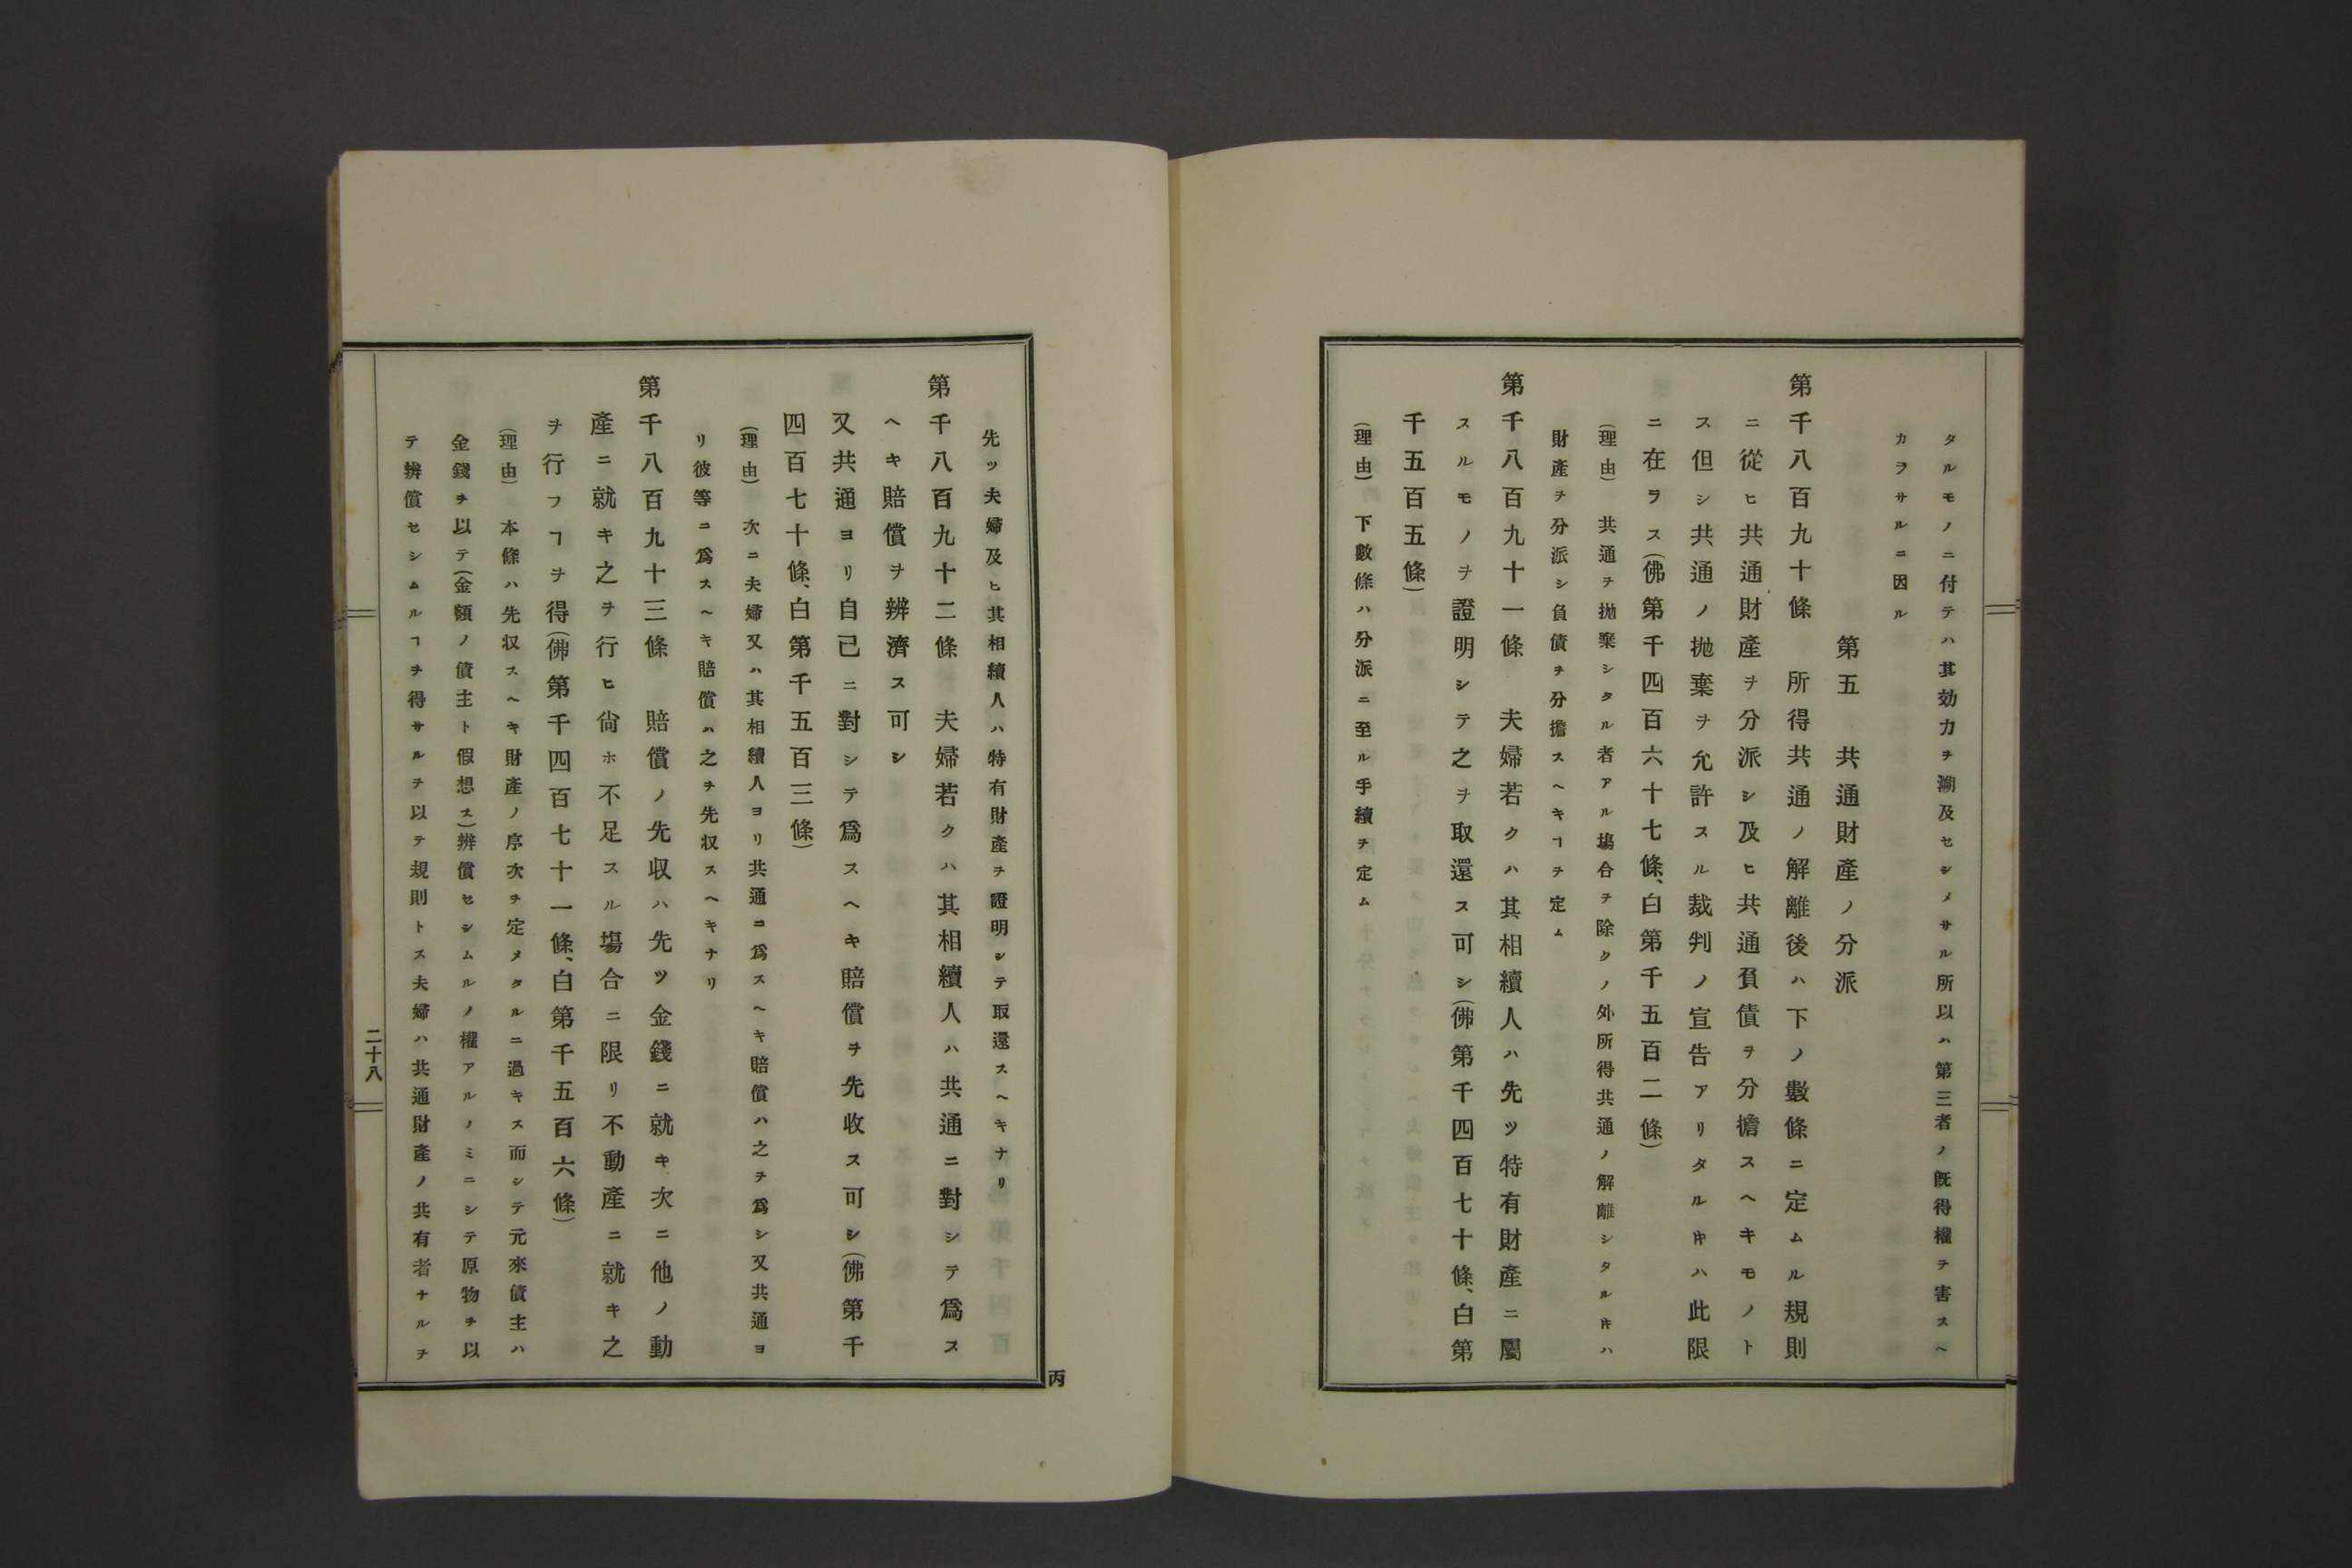 タルモノニ付テハ其効力ヲ溯及セシメサル所以ハ第三者ノ既得權ヲ害スヘ
カラサルニ因ル
第五　共通財產ノ分派
第千八百九十條　所得共通ノ解離後ハ下ノ數條ニ定ムル規則
ニ從ヒ共通財產ヲ分派シ及ヒ共通負債ヲ分擔スヘキモノト
ス但シ共通ノ抛棄ヲ允許スル裁判ノ宣告アリタルキハ此限
ニ在ラス(佛第千四百六十七條、白第千五百二條)
(理由)　共通ヲ抛棄シタル者アル塲合ヲ除クノ外所得共通ノ解離シタルキハ
財產ヲ分派シ負債ヲ分擔スヘキヿヲ定ム
第千八百九十一條　夫婦若クハ其相續人ハ先ツ特有財產ニ屬
スルモノヲ證明シテ之ヲ取還ス可シ(佛第千四百七十條、白第
千五百五條)
(理由)　下數條ハ分派ニ至ル手續ヲ定ム
丙
先ツ夫婦及ヒ其相續人ハ特有財產ヲ證明シテ取還スヘキナリ
第千八百九十二條　夫婦若クハ其相續人ハ共通ニ對シテ爲ス
ヘキ賠償ヲ辨濟ス可シ
又共通ヨリ自己ニ對シテ爲スヘキ賠償ヲ先收ス可シ(佛第千
四百七十條、白第千五百三條)
(理由)　次ニ夫婦又ハ其相續人ヨリ共通ニ爲スヘキ賠償ハ之ヲ爲シ又共通ヨ
リ彼等ニ爲スヘキ賠償ハ之ヲ先収スヘキナリ
第千八百九十三條　賠償ノ先収ハ先ツ金錢ニ就キ次ニ他ノ動
產ニ就キ之ヲ行ヒ尙ホ不足スル塲合ニ限リ不動產ニ就キ之
ヲ行フヿヲ得(佛第千四百七十一條、白第千五百六條)
(理由)　本條ハ先収スヘキ財產ノ序次ヲ定メタルニ過キス而シテ元來債主ハ
金錢ヲ以テ(金額ノ債主ト假想ス)辨償セシムルノ權アルノミニシテ原物ヲ以
テ辨償セシムルヿヲ得サルヲ以テ規則トス夫婦ハ共通財產ノ共有者ナルヲ
二十八